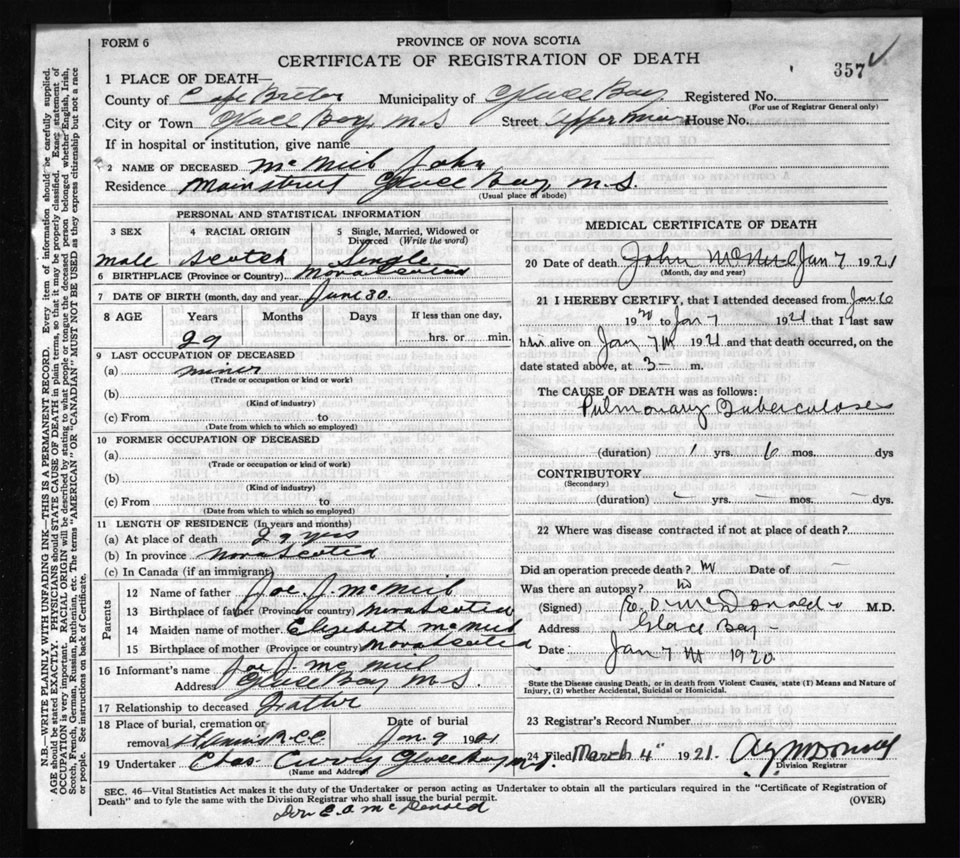 FORM 6
PROVINCE OF NOVA SCOTIA
CERTIFICATE OF REGISTRATION OF DEATH
357
1 PLACE OF DEATH—
County of Cape Breton Municipality of Glace Bay Registered No.
(For use of Registrar General only)
City or Town Glace Bay N.S Street Upper Main House No.
If in hospital or institution, give name
2 NAME OF DECEASED McNeil John
Residence Mainstreet Glace Bay, N.S.
(Usual place of abode)
PERSONAL AND STATISTICAL INFORMATION
3 SEX 4 RACIAL ORIGIN 5 Single, Married, Widowed or Divorced (Write the word)
Male Scotch Single
6 BIRTHPLACE (Province or Country) Nova Scotia
7 DATE OF BIRTH (month, day and year) June 30.
8 AGE Years Months Days If less than one day,
29 hrs. or min.
9 LAST OCCUPATION OF DECEASED
(a) miner
(Trade or occupation or kind or work)
(b)
(Kind of industry)
(c) From to
(Date from which to which so employed)
10 FORMER OCCUPATION OF DECEASED
(a)
(Trade or occupation or kind of work)
(b)
(Kind of industry)
(c) From to
(Date from which to which so employed)
11 LENGTH OF RESIDENCE (In years and months)
(a) At place of death 29 yrs
(b) In province Nova Scotia
(c) In Canada (if an immigrant)
Parents
12 Name of father Joe. J. McNeil
13 Birthplace of father (Province or country) Nova Scotia
14 Maiden name of mother Elizabeth McNeil
15 Birthplace of mother (Province or country) Nova Scotia
16 Informant's name Joe J. McNeil
Address Glace Bay N.S.
17 Relationship to deceased Father
18 Place of burial, cremation or Date of burial
removal R.C.C Jan. 9 1921
19 Undertaker Chas. Curry Glace Bay N.S.
(Name and Address)
MEDICAL CERTIFICATE OF DEATH
20 Date of death John McNeil Jan 7 1921
(Month, day and year)
21 I HEREBY CERTIFY, that I attended deceased from Jan 6
19 to Jan 7 1921 that I last saw
him alive on Jan 7th 1921 and that death occurred, on the
date stated above, at 3— m.
The CAUSE OF DEATH was as follows:
Pulmonary Tuberculosis
(duration) 1 yrs. 6 mos. dys
CONTRIBUTORY
(Secondary)
(duration) — yrs. — mos. — dys.
22 Where was disease contracted if not at place of death?
Did an operation precede death? no Date of —
Was there an autopsy? no
(Signed) E. O. McDonald M.D.
Address Glace Bay —
Date Jan 7th 1920
State the Disease causing Death, or in death from Violent Causes, state (1) Means and Nature of
Injury, (2) whether Accidental, Suicidal or Homicidal.
23 Registrar's Record Number
24 Filed March 4" 1921.
Division Registrar
SEC. 46—Vital Statistics Act makes it the duty of the Undertaker or person acting as Undertaker to obtain all the particulars required in the "Certificate of Registration of
Death" and to fyle the same with the Division Registrar who shall issue the burial permit. (OVER)
E.O. McDonald
N.B.—WRITE PLAINLY WITH UNFADING INK—THIS IS A PERMANENT RECORD. Every item of information should be carefully supplied.
AGE should be stated EXACTLY. PHYSICIANS should STATE CAUSE OF DEATH in plain terms, so that it may be properly classified. Exact statement of
OCCUPATION is very important. RACIAL ORIGIN will be described by stating to what people or tongue the deceased person belonged whether English, Irish,
Scotch, French, German, Russian, Ruthenian, etc. The terms "AMERICAN" OR "CANADIAN" MUST NOT BE USED as they express citizenship but not a race
or people. See instructions on back of Certificate.